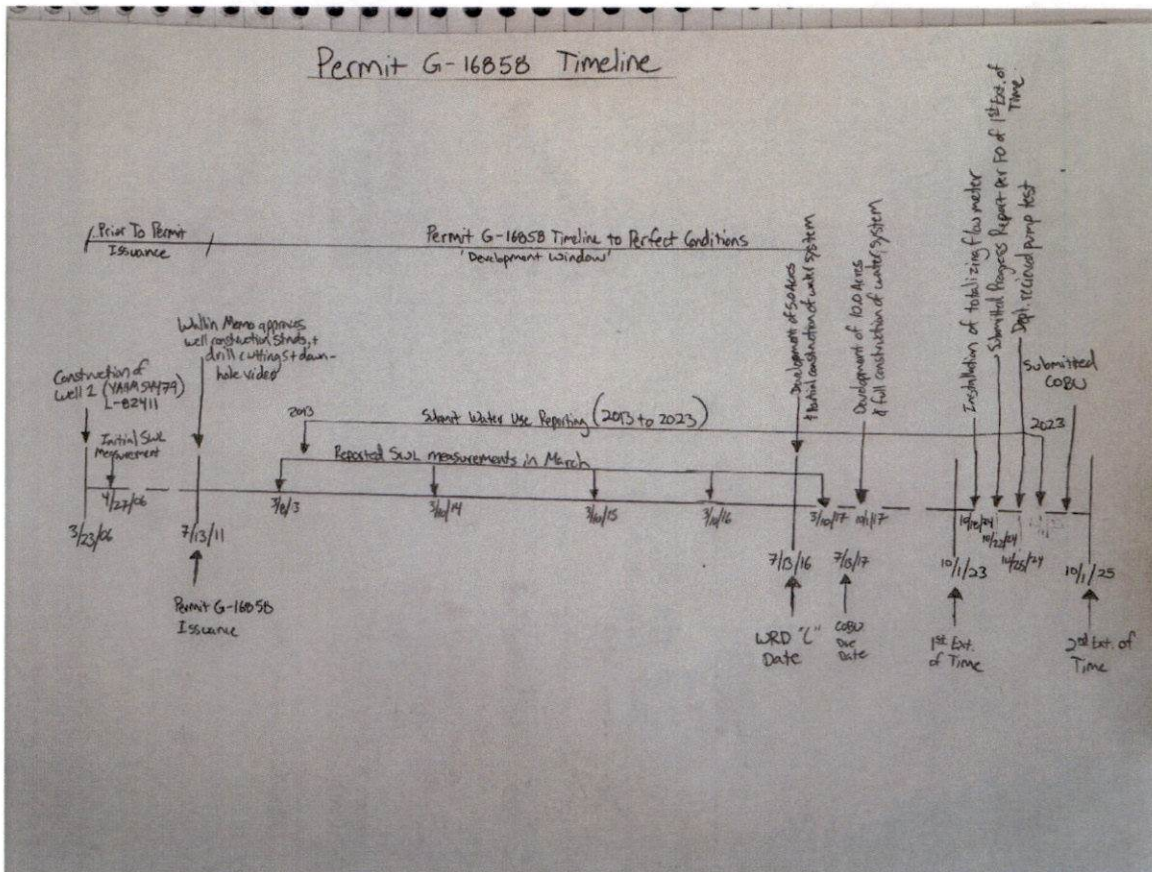 Permit G-16858 Timeline
Prior To Permit
Issuance
Permit G-16858 Timeline to Perfect Conditions
'Development Window'
Construction of
Well 2 (YAMH 54479)
L-82411
Initial SWL
Measurement
Wallin Memo approves
well construction stnds, +
drill cuttings + down-
hole video
2013
Submit Water Use Reporting (2013 to 2023)
2023
Reported SWL measurements in March
Development of 5.0 Acres
& Partial construction of water system
Development of 10.0 Acres
& full construction of water system
Installation of totalizing flow meter
Submitted Progress Report per FO of 1st Ext. of
Time
Dept. recieved pump test
Submitted
COBU
3/23/06
4/27/06
7/13/11
3/8/3
3/10/14
3/10/15
3/10/16
7/13/16
3/10/17
7/13/17
10/1/17
10/1/23
10/18/24
10/22/24
10/25/24
10/1/25
Permit G-16858
Issuance
WRD "C"
Date
COBU
Due
Date
1st Ext.
of Time
2nd Ext. of
Time